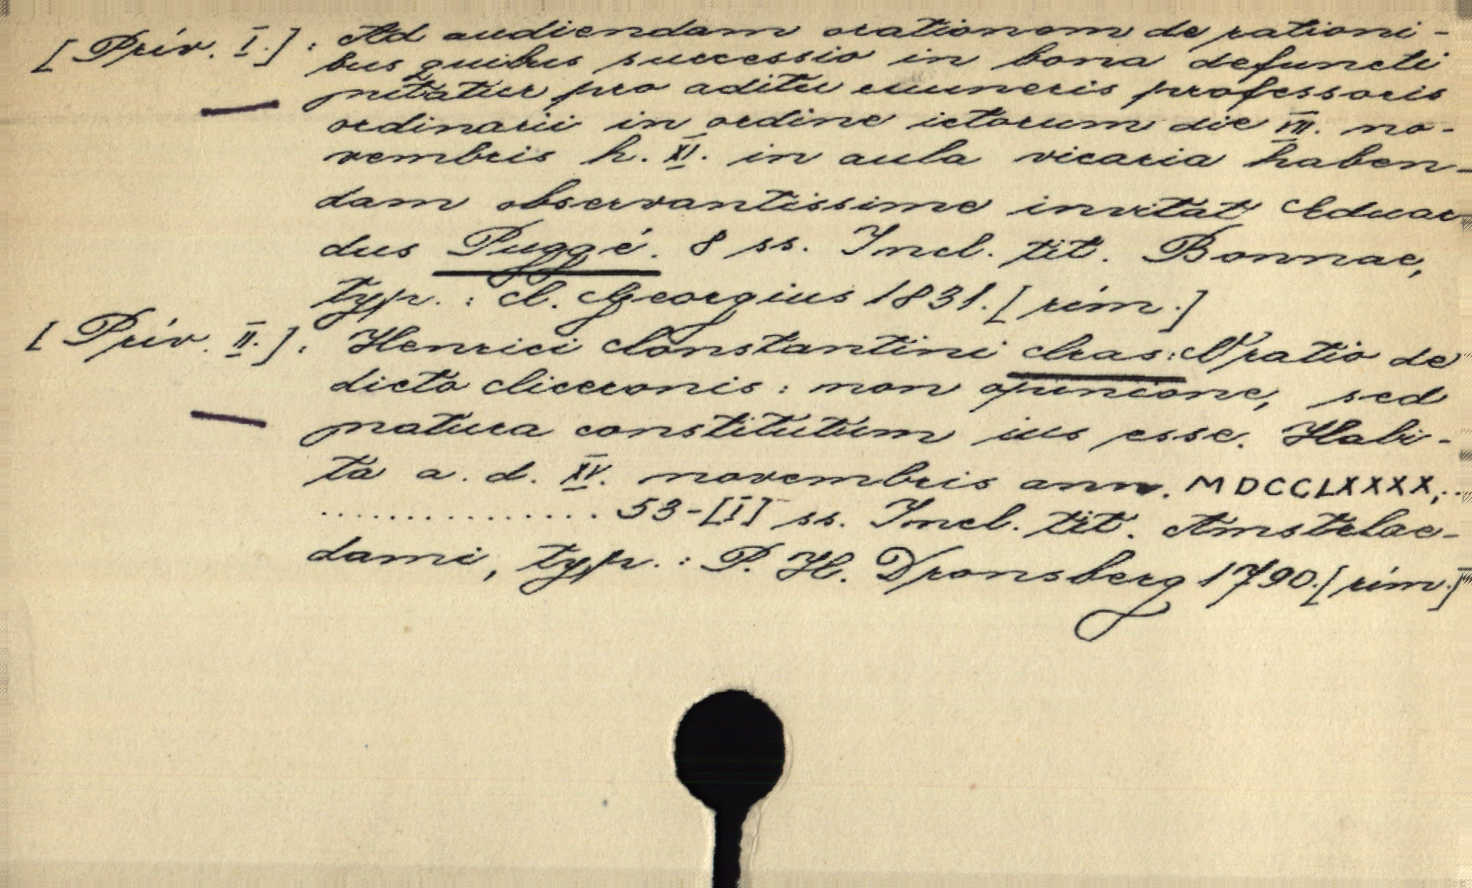 [Přív. I.]: Ad audiendam orationem de rationi-
bus quibus successio in bona defuncti
nitatur pro aditu muneris professoris
ordinarii in ordine ictorum die VII. no-
vembris h. XI. in aula vicaria haben-
dam observantissime invitat Eduar
dus Puggé. 8 ss. Incl. tit. Bonnae,
typ.: C. Georgius 1831. [rím.]
[Přív. II.]: Henrici Constantini Cras: Oratio de
dicto Ciceronis: non opinione, sed
natura constitutum ius esse. Habi-
ta a. d. XV. novembris ann. MDCCLXXXX,..
............... 53-[I] ss. Incl. tit. Amstelae-
dami, typ.: P. H. Dronsberg 1790. [rím.]